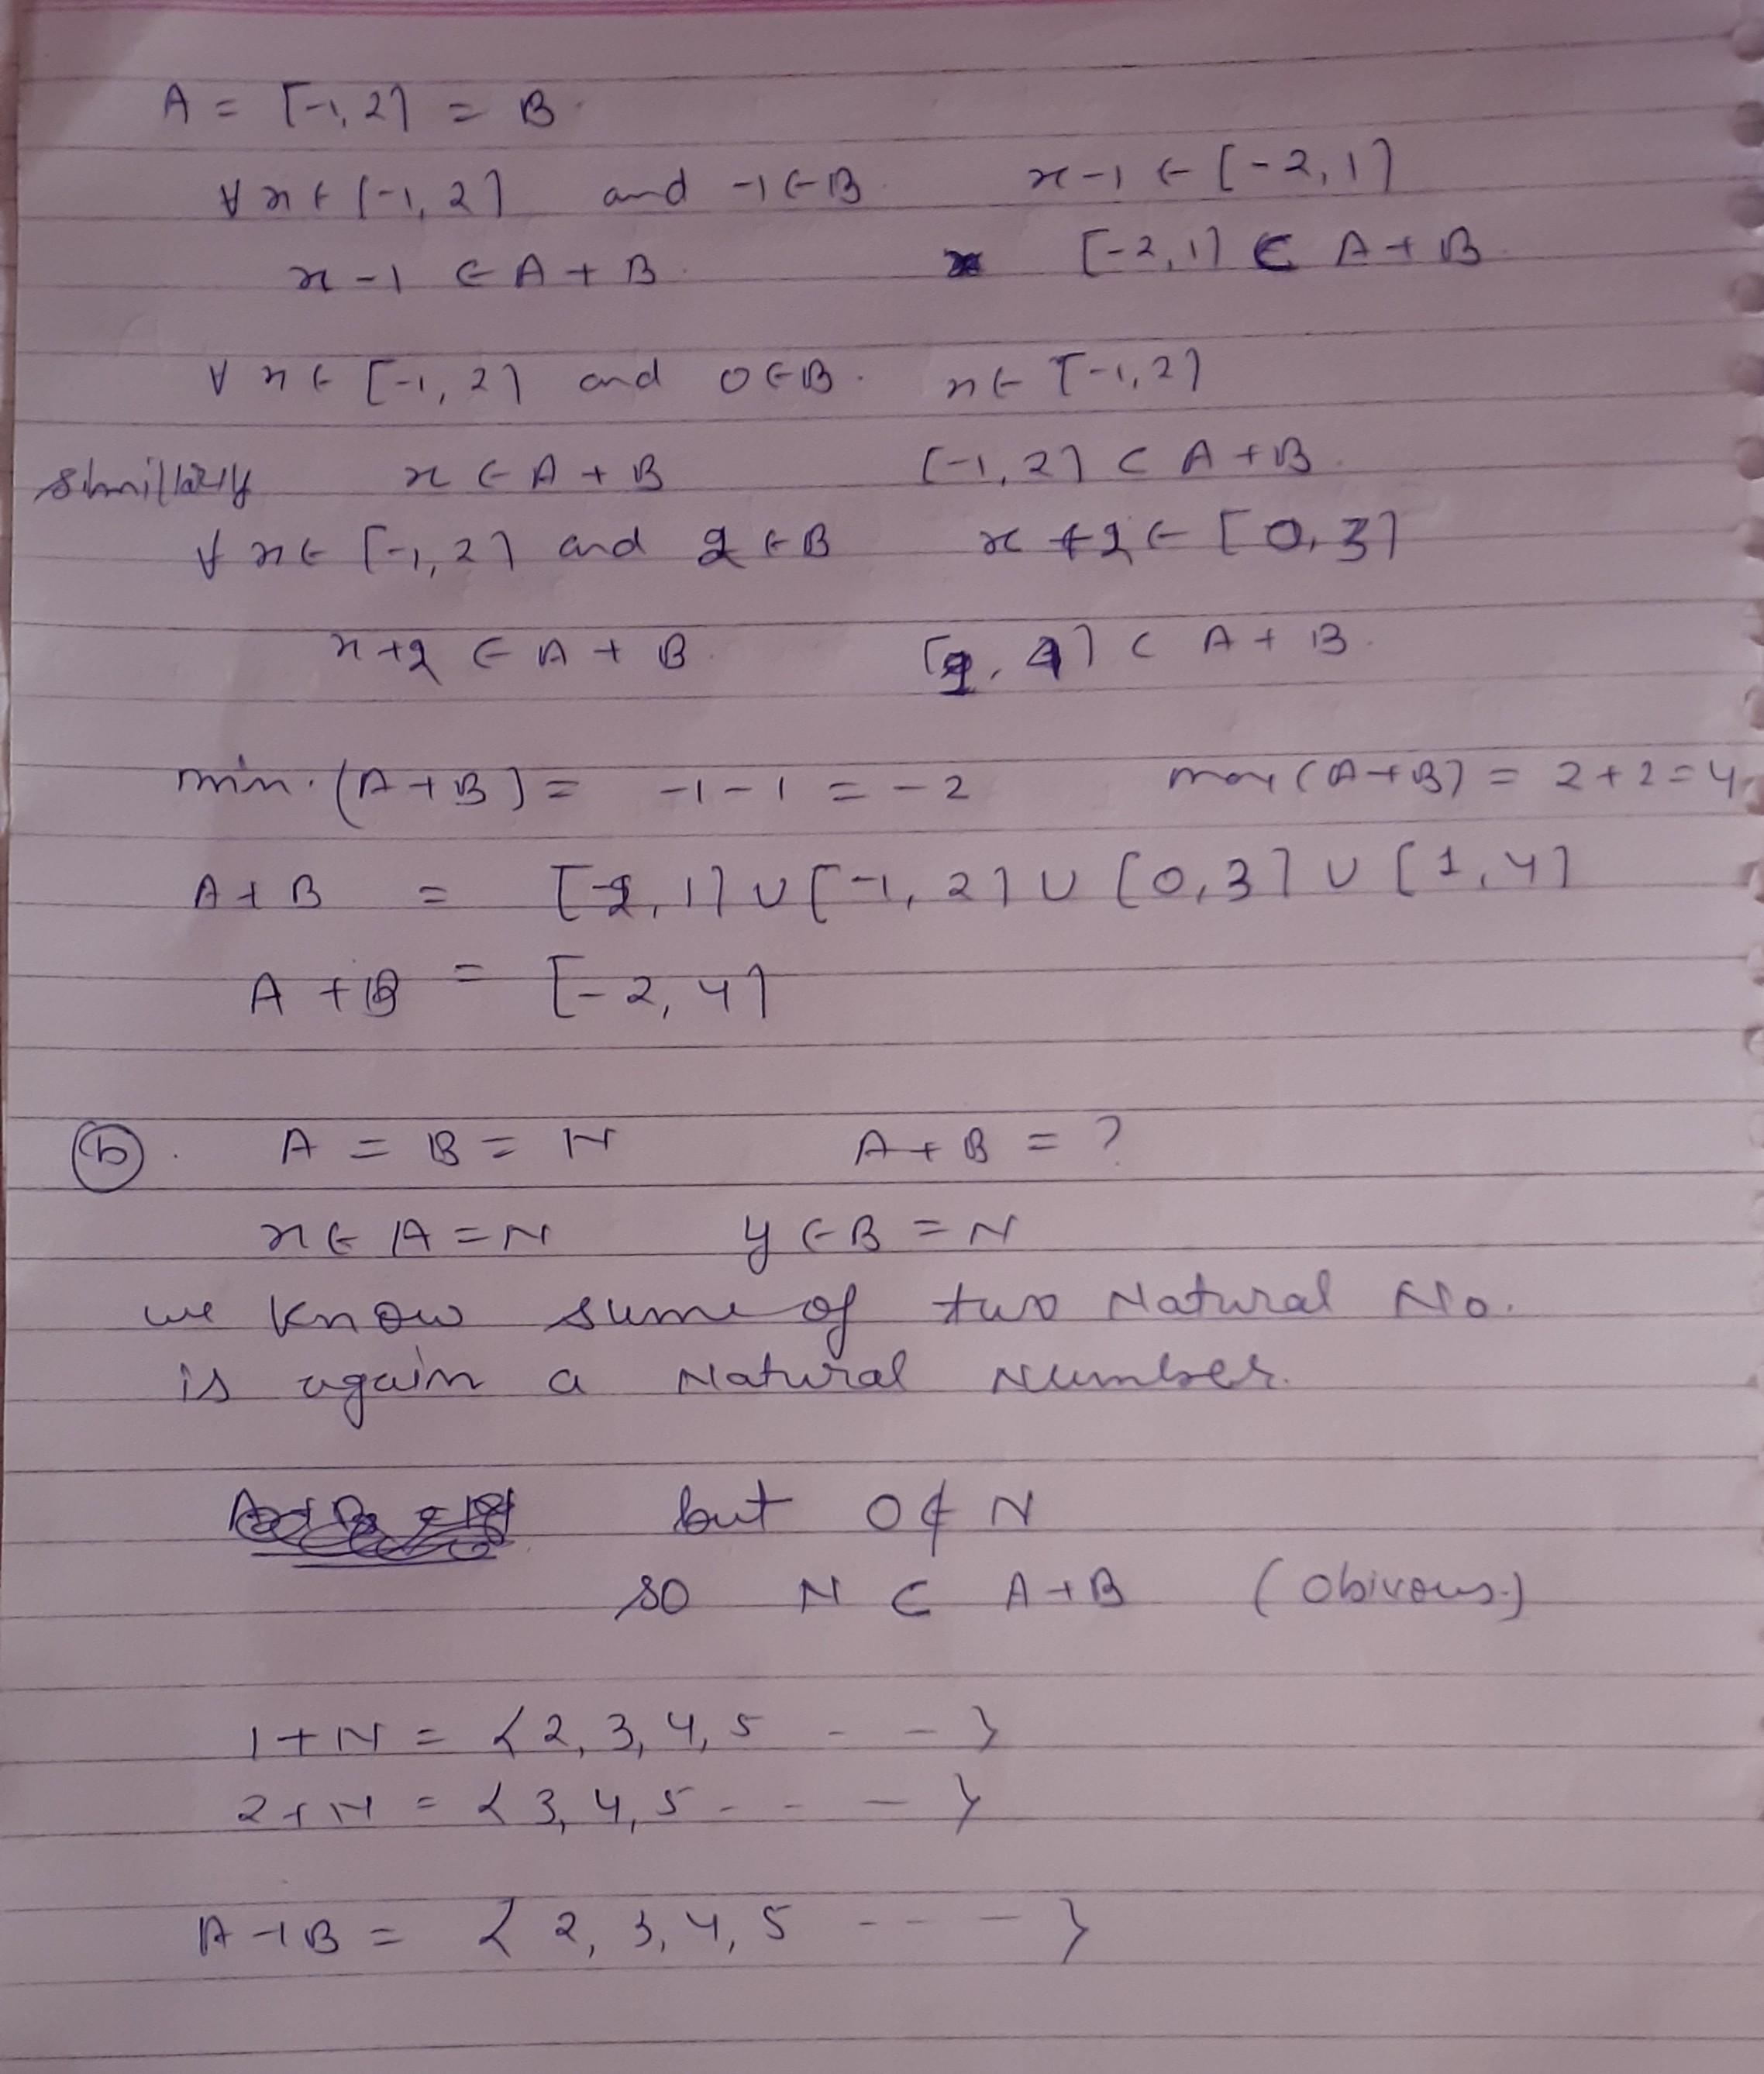 A = [-1, 2] = B.
∀ x ∈ [-1, 2] and -1 ∈ B. x-1 ∈ [-2, 1]
x-1 ∈ A + B. [-2, 1] ⊂ A + B
∀ x ∈ [-1, 2] and 0 ∈ B. x ∈ [-1, 2]
simillarly x ∈ A + B [-1, 2] ⊂ A + B.
∀ x ∈ [-1, 2] and 2 ∈ B x + 2 ∈ [0, 3]
x + 2 ∈ A + B. [1, 4] ⊂ A + B.
min. (A + B) = -1 - 1 = -2 max (A + B) = 2 + 2 = 4
A + B = [-2, 1] ∪ [-1, 2] ∪ [0, 3] ∪ [1, 4]
A + B = [-2, 4]
(b). A = B = N A + B = ?
x ∈ A = N y ∈ B = N
we know sume of two Natural No.
is again a Natural Number.
but 0 ∉ N
so N ⊂ A + B (obivous.)
1 + N = {2, 3, 4, 5 - - }
2 + N = {3, 4, 5 - - - }
A + B = {2, 3, 4, 5 - - - }